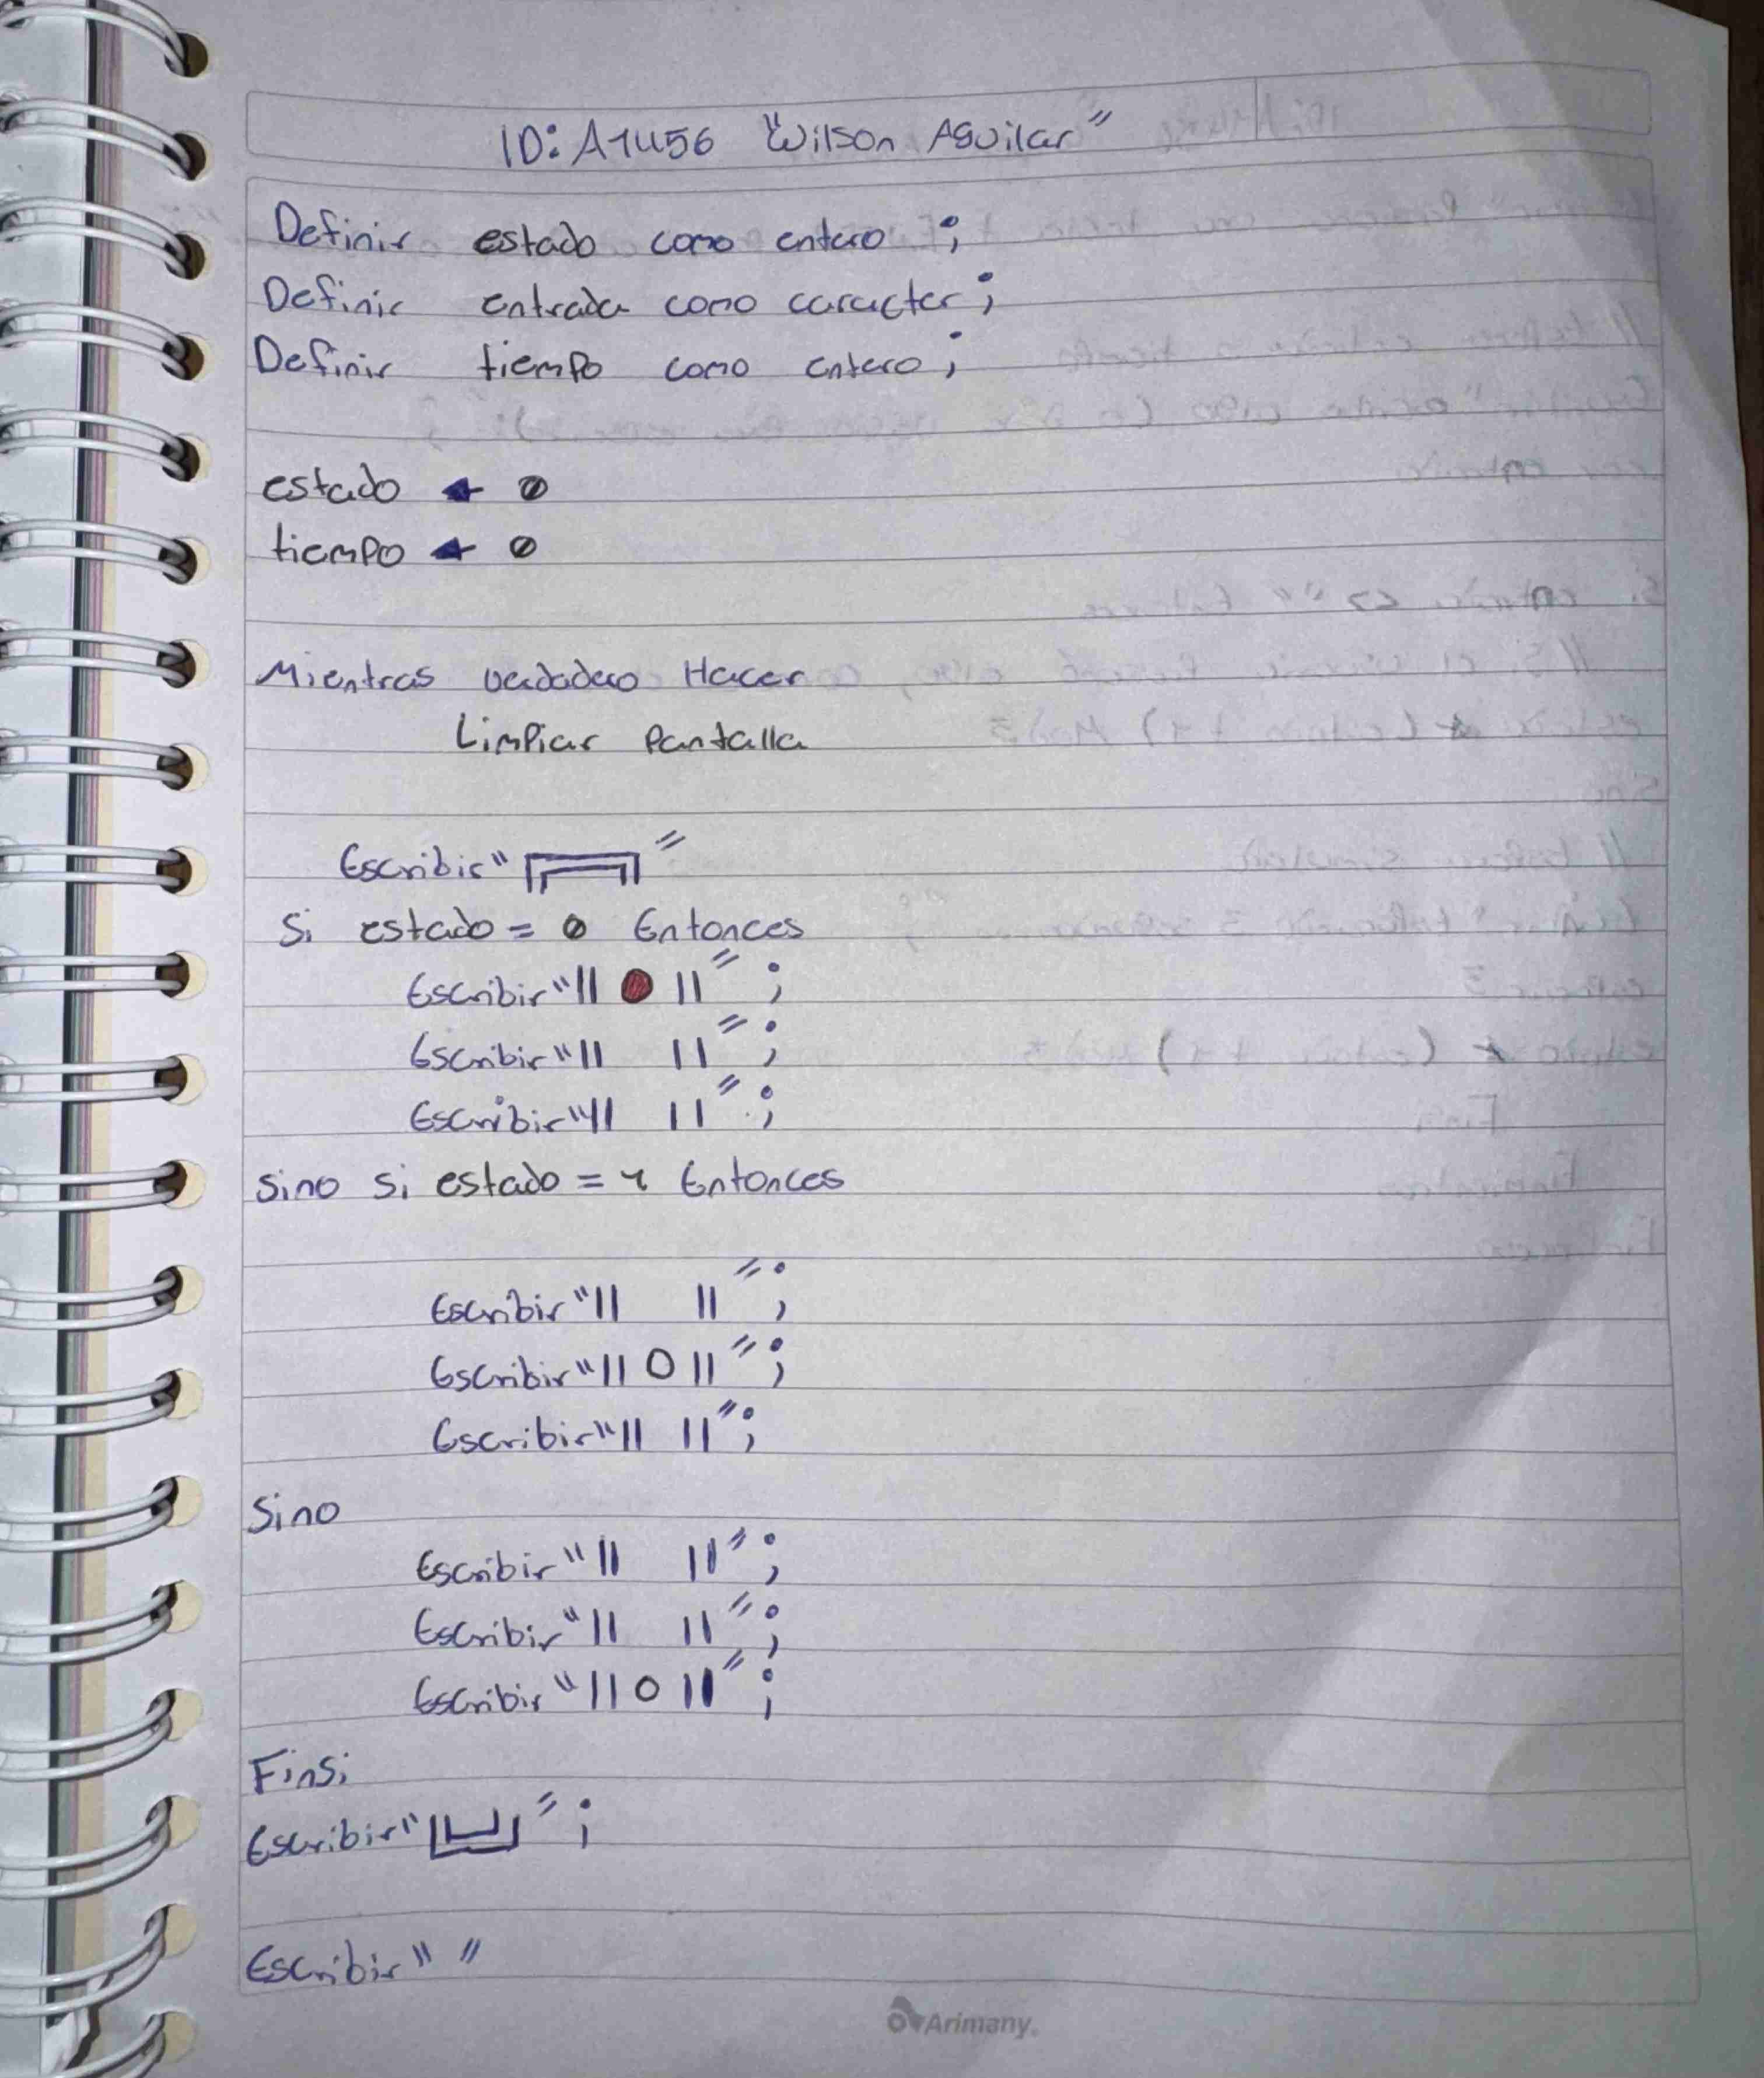 ID: A1456 "Wilson Aguilar"
Definir estado como entero ;
Definir entrada como caracter ;
Definir tiempo como entero ;
estado ← 0
tiempo ← 0
Mientras verdadero Hacer
Limpiar Pantalla
Escribir "╔═╗"
Si estado = 0 Entonces
Escribir "|| ● ||" ;
Escribir "||   ||" ;
Escribir "||   ||" ;
sino si estado = 1 Entonces
Escribir "||   ||" ;
Escribir "|| O ||" ;
Escribir "||   ||" ;
Sino
Escribir "||   ||" ;
Escribir "||   ||" ;
Escribir "|| O ||" ;
Finsi
Escribir "╚═╝" ;
Escribir " "
Arimany.